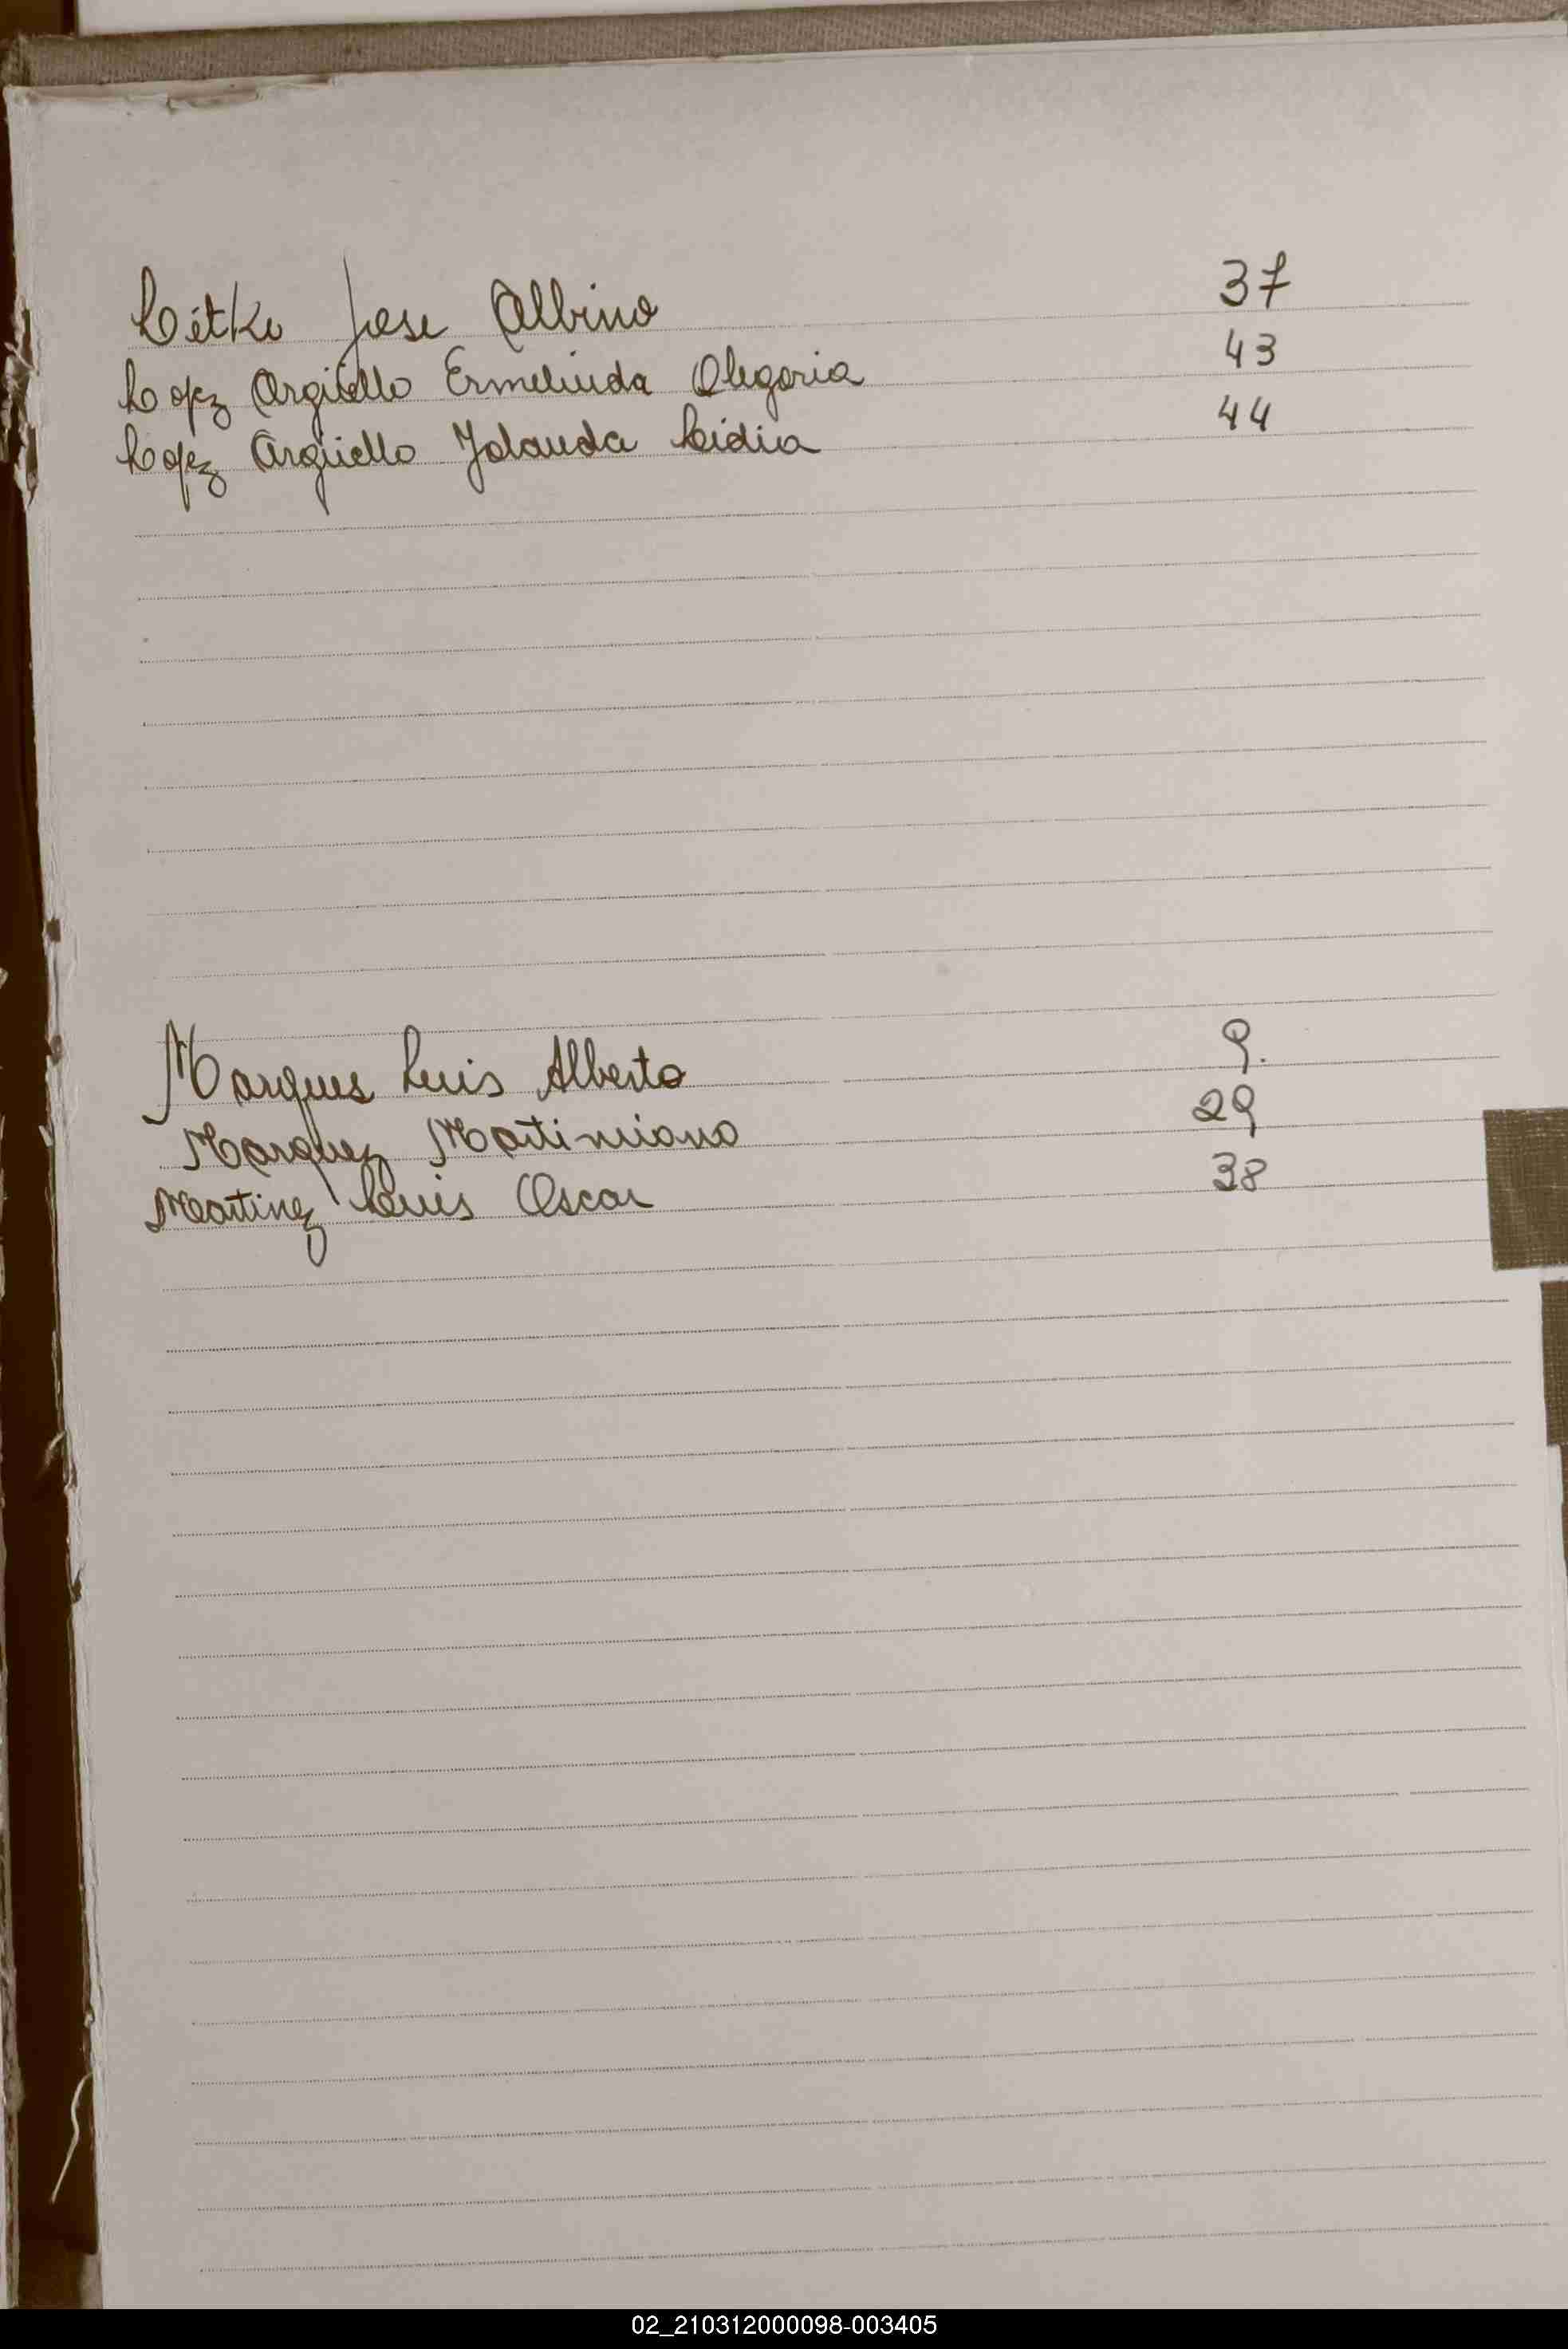 Litke Jose Albino 37
Lopez Argüello Ermelinda Olegaria 43
Lopez Argüello Yolanda Lidia 44
Marques Luis Alberto 9.
Marquez Martimiano 29
Martinez Luis Oscar 38
02_210312000098-003405